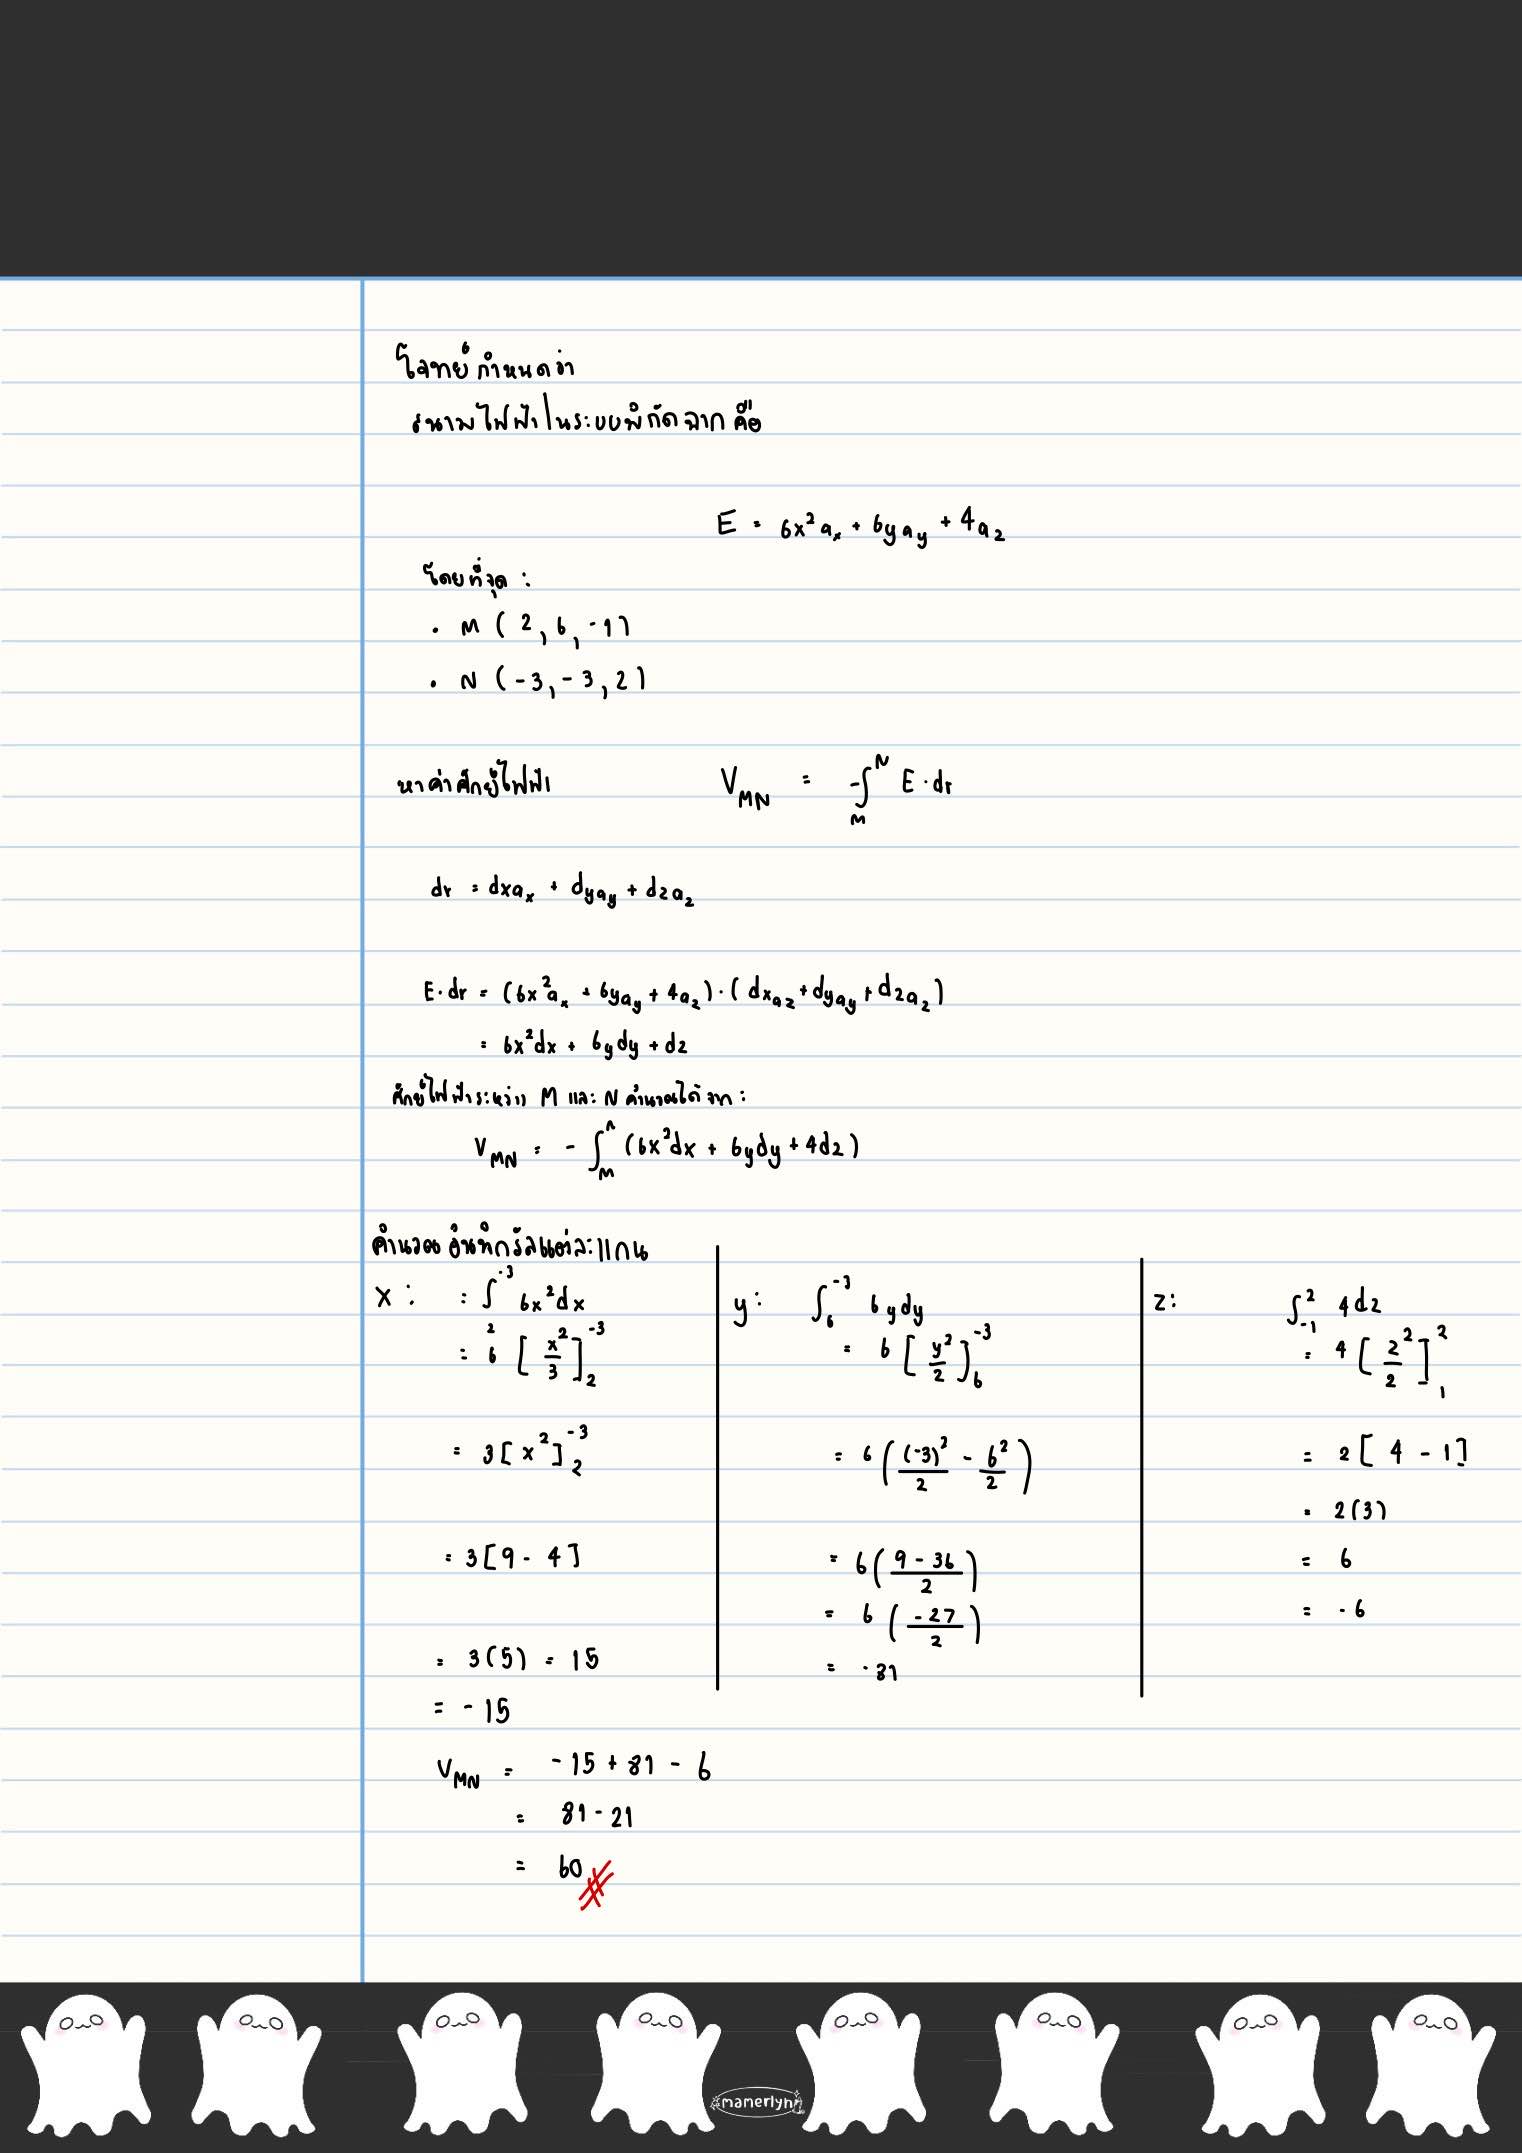 โจทย์กำหนดว่า
สนามไฟฟ้าในระบบพิกัดฉาก คือ
E = 6x²aₓ + 6yay + 4az
โดยที่จุด :
• M ( 2, 6, -1)
• N (-3, -3, 2)
หาค่าศักย์ไฟฟ้า V_MN = -∫_M^N E · dr
dr = dxaₓ + dyay + dzaz
E·dr = (6x²aₓ + 6yay + 4az)·(dxaz + dyay + dzaz)
= 6x²dx + 6ydy + dz
ศักย์ไฟฟ้าระหว่าง M และ N คำนวณได้จาก :
V_MN = - ∫_M^N (6x²dx + 6ydy + 4dz)
คำนวณ อินทิกรัลแต่ละแกน
x : = ∫_2^-3 6x²dx
= 6 [x²/3]_2^-3
= 3[x²]_2^-3
= 3[9 - 4]
= 3(5) = 15
= -15
y : ∫_6^-3 6ydy
= 6 [y²/2]_6^-3
= 6 ((-3)²/2 - 6²/2)
= 6 ((9 - 36)/2)
= 6 (-27/2)
= -81
z : ∫_-1^2 4dz
= 4 [z²/2]_1^2
= 2[4 - 1]
= 2(3)
= 6
= -6
V_MN = -15 + 81 - 6
= 81 - 21
= 60
mamerlyn